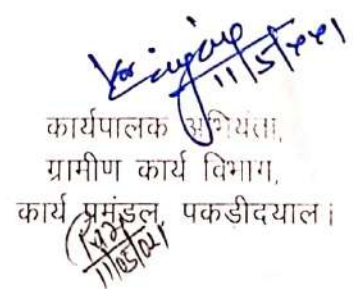 11/5/2021
कार्यपालक अभियंता,
ग्रामीण कार्य विभाग,
कार्य प्रमंडल, पकडीदयाल।
11/05/021